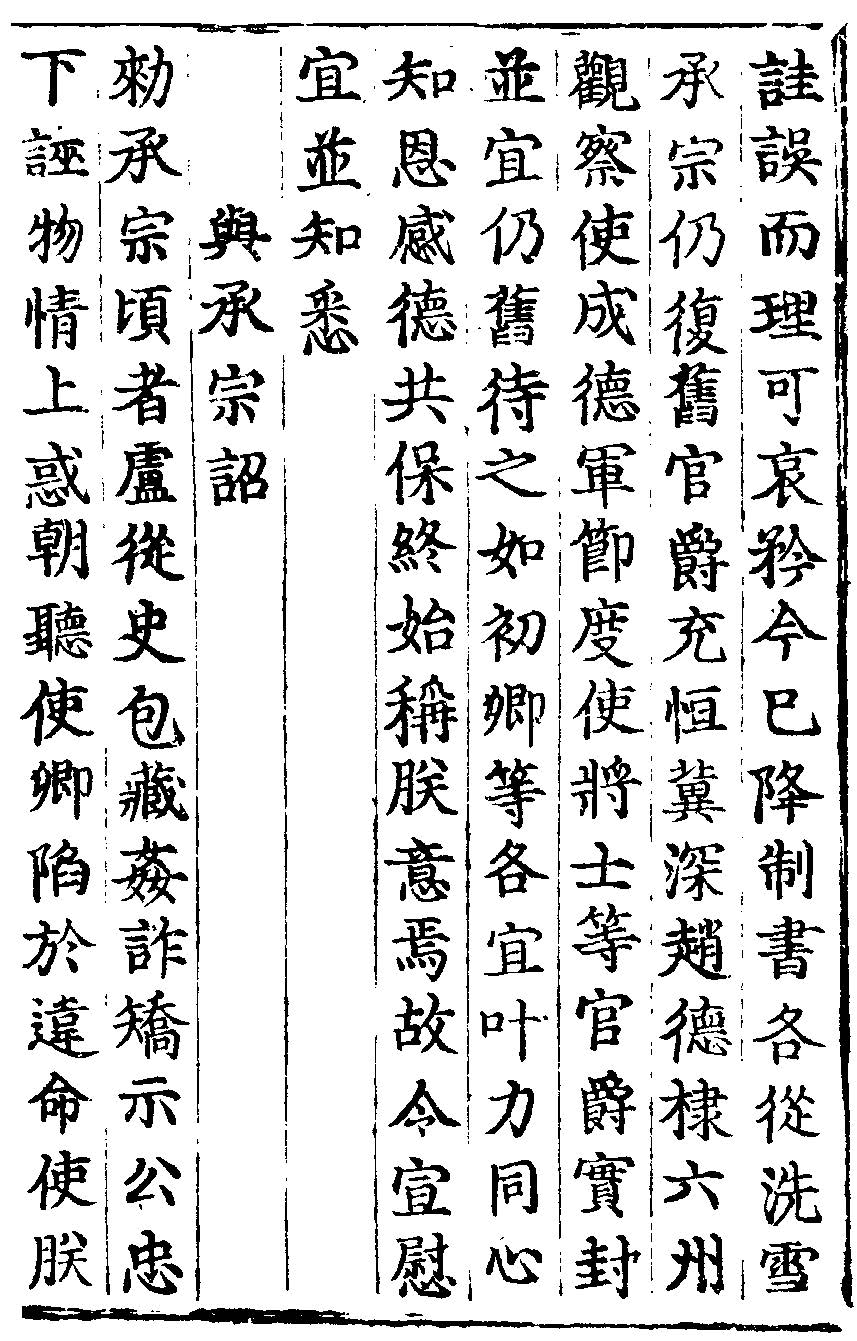 詿誤而理可哀矜今已降制書各從洗雪
承宗仍復舊官爵充恒冀深趙德棣六州
觀察使成德軍節度使將士等官爵實封
並宜仍舊待之如初卿等各宜叶力同心
知恩感德共保終始稱朕意焉故令宣慰
宜並知悉
與承宗詔
勑承宗頃者盧從史包藏姦詐矯示公忠
下誣物情上惑朝聽使卿陷於違命使朕